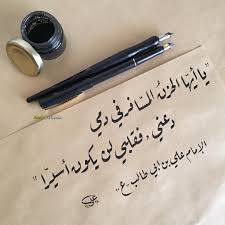 "يا أيها الحزن المسافر في دمي
دعني، فقلبي لن يكون أسيرا"
الإمام علي بن أبي طالب "ع"